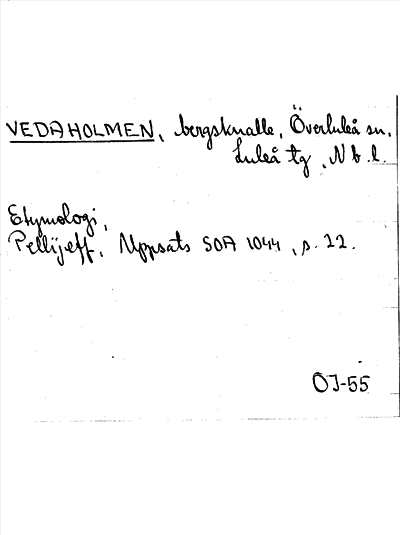 VEDAHOLMEN, bergsknalle, Överluleå sn,
Luleå tg, Nb. l.
Etymologi,
Pellijeff, Uppsats SOA 1044, s. 22.
OJ-55